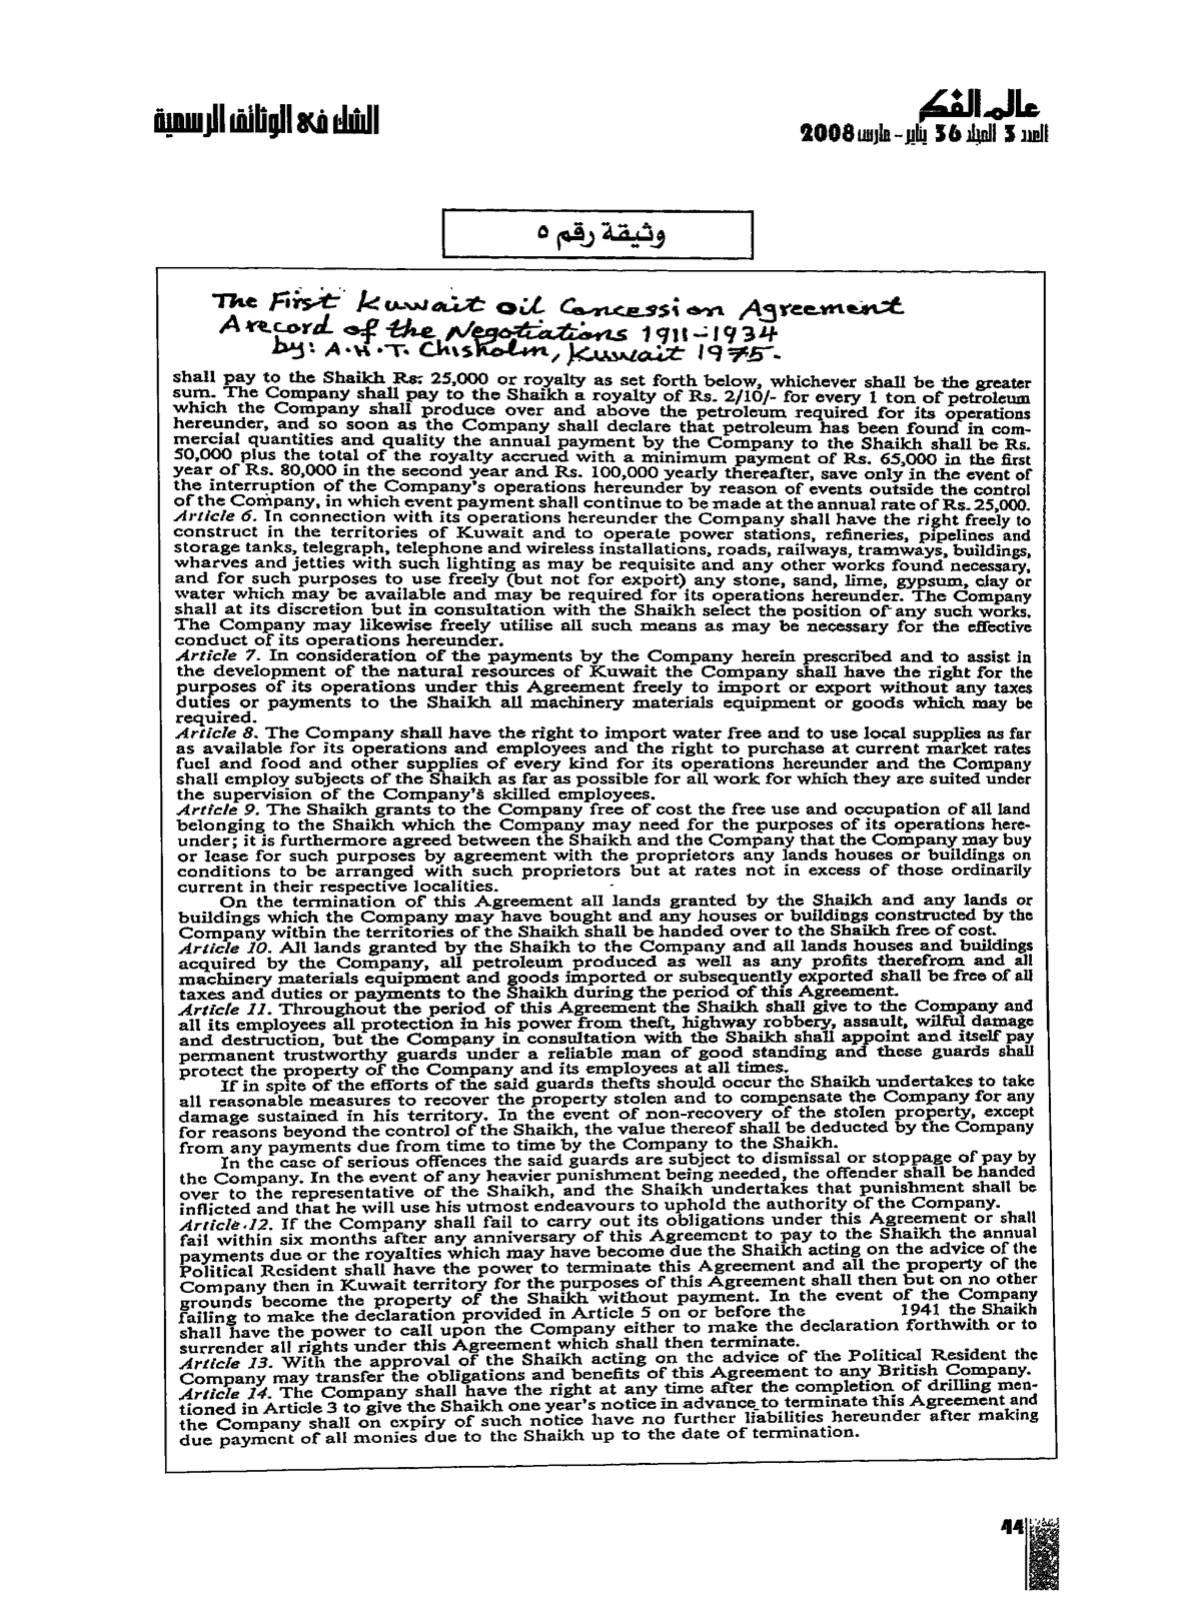 عالم الفكر
العدد 3 المجلد 36 يناير - مارس 2008
الشك في الوثائق الرسمية
وثيقة رقم ٥
The First Kuwait oil Concession Agreement
A record of the Negotiations 1911-1934
by: A.H.T. Chisholm, Kuwait 1975.
shall pay to the Shaikh Rs: 25,000 or royalty as set forth below, whichever shall be the greater
sum. The Company shall pay to the Shaikh a royalty of Rs. 2/10/- for every 1 ton of petroleum
which the Company shall produce over and above the petroleum required for its operations
hereunder, and so soon as the Company shall declare that petroleum has been found in com-
mercial quantities and quality the annual payment by the Company to the Shaikh shall be Rs.
50,000 plus the total of the royalty accrued with a minimum payment of Rs. 65,000 in the first
year of Rs. 80,000 in the second year and Rs. 100,000 yearly thereafter, save only in the event of
the interruption of the Company's operations hereunder by reason of events outside the control
of the Company, in which event payment shall continue to be made at the annual rate of Rs. 25,000.
Article 6. In connection with its operations hereunder the Company shall have the right freely to
construct in the territories of Kuwait and to operate power stations, refineries, pipelines and
storage tanks, telegraph, telephone and wireless installations, roads, railways, tramways, buildings,
wharves and jetties with such lighting as may be requisite and any other works found necessary,
and for such purposes to use freely (but not for export) any stone, sand, lime, gypsum, clay or
water which may be available and may be required for its operations hereunder. The Company
shall at its discretion but in consultation with the Shaikh select the position of any such works.
The Company may likewise freely utilise all such means as may be necessary for the effective
conduct of its operations hereunder.
Article 7. In consideration of the payments by the Company herein prescribed and to assist in
the development of the natural resources of Kuwait the Company shall have the right for the
purposes of its operations under this Agreement freely to import or export without any taxes
duties or payments to the Shaikh all machinery materials equipment or goods which may be
required.
Article 8. The Company shall have the right to import water free and to use local supplies as far
as available for its operations and employees and the right to purchase at current market rates
fuel and food and other supplies of every kind for its operations hereunder and the Company
shall employ subjects of the Shaikh as far as possible for all work for which they are suited under
the supervision of the Company's skilled employees.
Article 9. The Shaikh grants to the Company free of cost the free use and occupation of all land
belonging to the Shaikh which the Company may need for the purposes of its operations here-
under; it is furthermore agreed between the Shaikh and the Company that the Company may buy
or lease for such purposes by agreement with the proprietors any lands houses or buildings on
conditions to be arranged with such proprietors but at rates not in excess of those ordinarily
current in their respective localities.
On the termination of this Agreement all lands granted by the Shaikh and any lands or
buildings which the Company may have bought and any houses or buildings constructed by the
Company within the territories of the Shaikh shall be handed over to the Shaikh free of cost.
Article 10. All lands granted by the Shaikh to the Company and all lands houses and buildings
acquired by the Company, all petroleum produced as well as any profits therefrom and all
machinery materials equipment and goods imported or subsequently exported shall be free of all
taxes and duties or payments to the Shaikh during the period of this Agreement.
Article 11. Throughout the period of this Agreement the Shaikh shall give to the Company and
all its employees all protection in his power from theft, highway robbery, assault, wilful damage
and destruction, but the Company in consultation with the Shaikh shall appoint and itself pay
permanent trustworthy guards under a reliable man of good standing and these guards shall
protect the property of the Company and its employees at all times.
If in spite of the efforts of the said guards thefts should occur the Shaikh undertakes to take
all reasonable measures to recover the property stolen and to compensate the Company for any
damage sustained in his territory. In the event of non-recovery of the stolen property, except
for reasons beyond the control of the Shaikh, the value thereof shall be deducted by the Company
from any payments due from time to time by the Company to the Shaikh.
In the case of serious offences the said guards are subject to dismissal or stoppage of pay by
the Company. In the event of any heavier punishment being needed, the offender shall be handed
over to the representative of the Shaikh, and the Shaikh undertakes that punishment shall be
inflicted and that he will use his utmost endeavours to uphold the authority of the Company.
Article 12. If the Company shall fail to carry out its obligations under this Agreement or shall
fail within six months after any anniversary of this Agreement to pay to the Shaikh the annual
payments due or the royalties which may have become due the Shaikh acting on the advice of the
Political Resident shall have the power to terminate this Agreement and all the property of the
Company then in Kuwait territory for the purposes of this Agreement shall then but on no other
grounds become the property of the Shaikh without payment. In the event of the Company
failing to make the declaration provided in Article 5 on or before the 1941 the Shaikh
shall have the power to call upon the Company either to make the declaration forthwith or to
surrender all rights under this Agreement which shall then terminate.
Article 13. With the approval of the Shaikh acting on the advice of the Political Resident the
Company may transfer the obligations and benefits of this Agreement to any British Company.
Article 14. The Company shall have the right at any time after the completion of drilling men-
tioned in Article 3 to give the Shaikh one year's notice in advance to terminate this Agreement and
the Company shall on expiry of such notice have no further liabilities hereunder after making
due payment of all monies due to the Shaikh up to the date of termination.
44